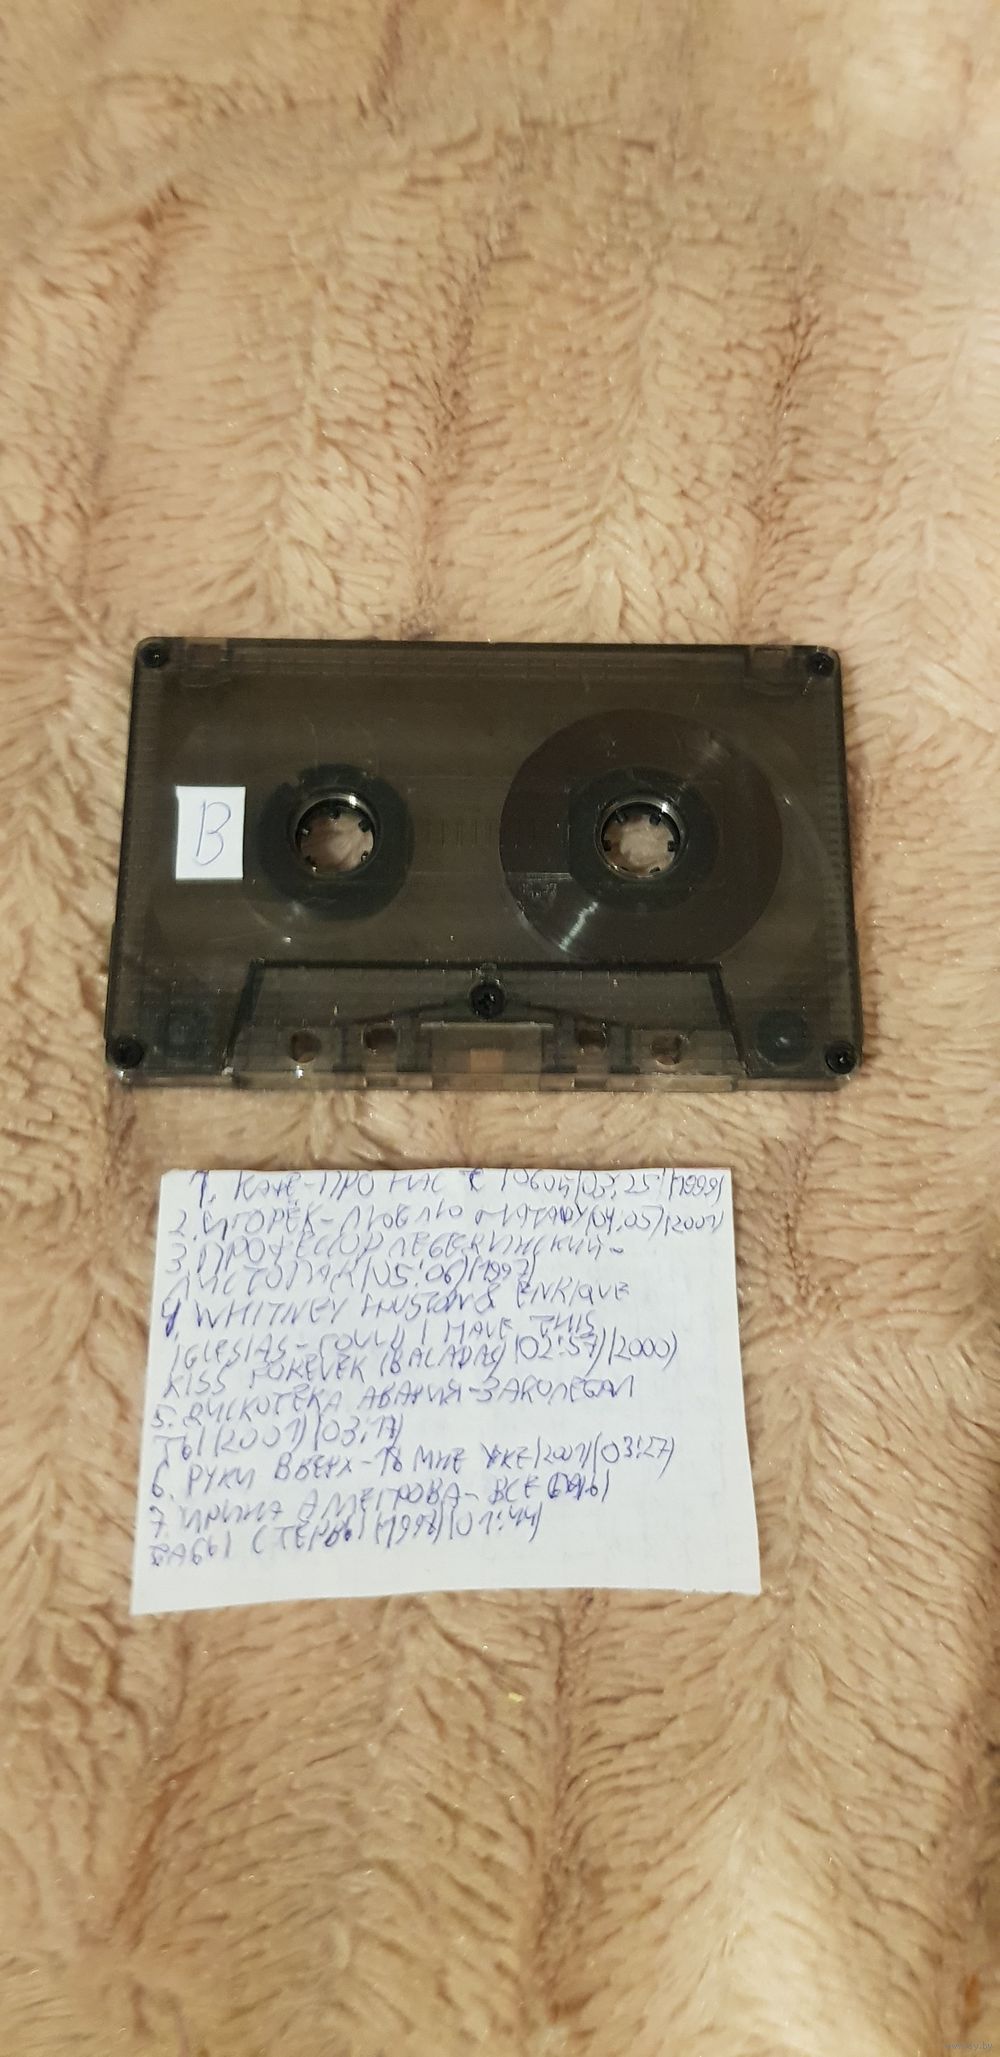 B
1. КАФЕ-ПРО НАС С ТОБОЙ(03:25)(1999)
2. ИГОРЁК-ЛЮБЛЮ (04:05)(2001)
3. ПРОФЕССОР ЛЕБЕДИНСКИЙ-
ЛИСТОПАД(05:06)(1997)
4. WHITNEY HOUSTON & ENRIQUE
IGLESIAS-COULD I HAVE THIS
KISS FOREVER (BALADAS)(02:57)(2000)
5. ДИСКОТЕКА АВАРИЯ-ЗАКОЛЕБАЛ
ТЫ(2001)(03:17)
6. РУКИ ВВЕРХ-ТЫ МНЕ УЖЕ(2001)(03:27)
7. ИРИНА АЛЛЕГРОВА-ВСЕ
БАБЫ СТЕРВЫ (01:44)